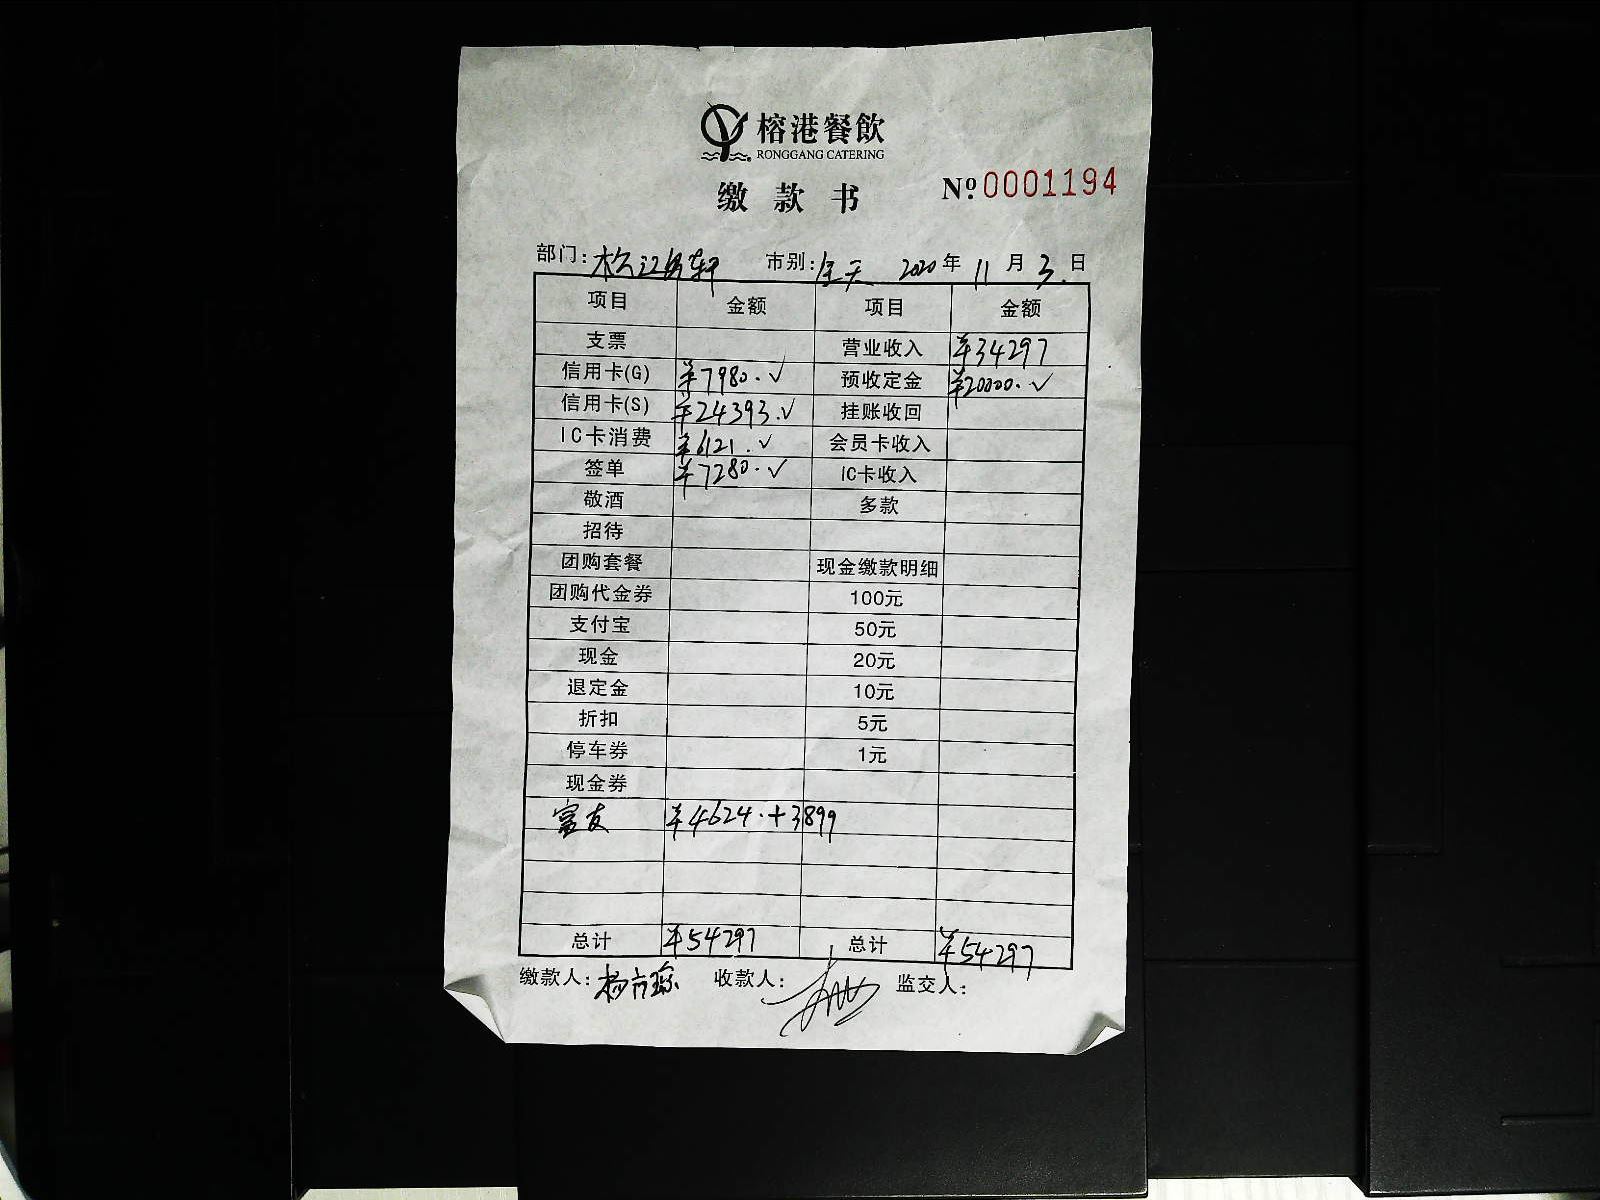 榕港餐飲
RONGGANG CATERING
缴款书
№0001194
部门: 松江逸轩 市别: 全天 2020年11月3日
项目 金额 项目 金额
支票 营业收入 ¥34297
信用卡(G) ¥7980.✓ 预收定金 ¥20000.✓
信用卡(S) ¥24393.✓ 挂账收回
IC卡消费 ¥6121.✓ 会员卡收入
签单 ¥7280.✓ IC卡收入
敬酒 多款
招待
团购套餐 现金缴款明细
团购代金券 100元
支付宝 50元
现金 20元
退定金 10元
折扣 5元
停车券 1元
现金券
富友 ¥4624.+3899
总计 ¥54297 总计 ¥54297
缴款人: 收款人: 监交人: